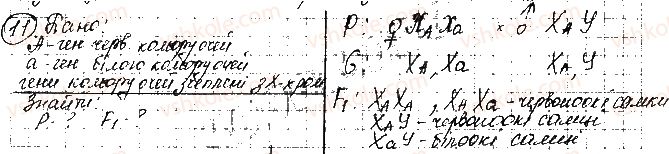 11 Дано:
А-ген черв. кольору очей
а-ген білого кольору очей
гени кольору очей зчеплені з Х-хром
Знайти:
Р-? F₁-?
Р: ♀ XAXa × ♂ XAY
G: XA, Xa XA, Y
F₁: XAXA, XAXa - червоноокі самки
XAY - червоноокі самці
XaY - білоокі самці